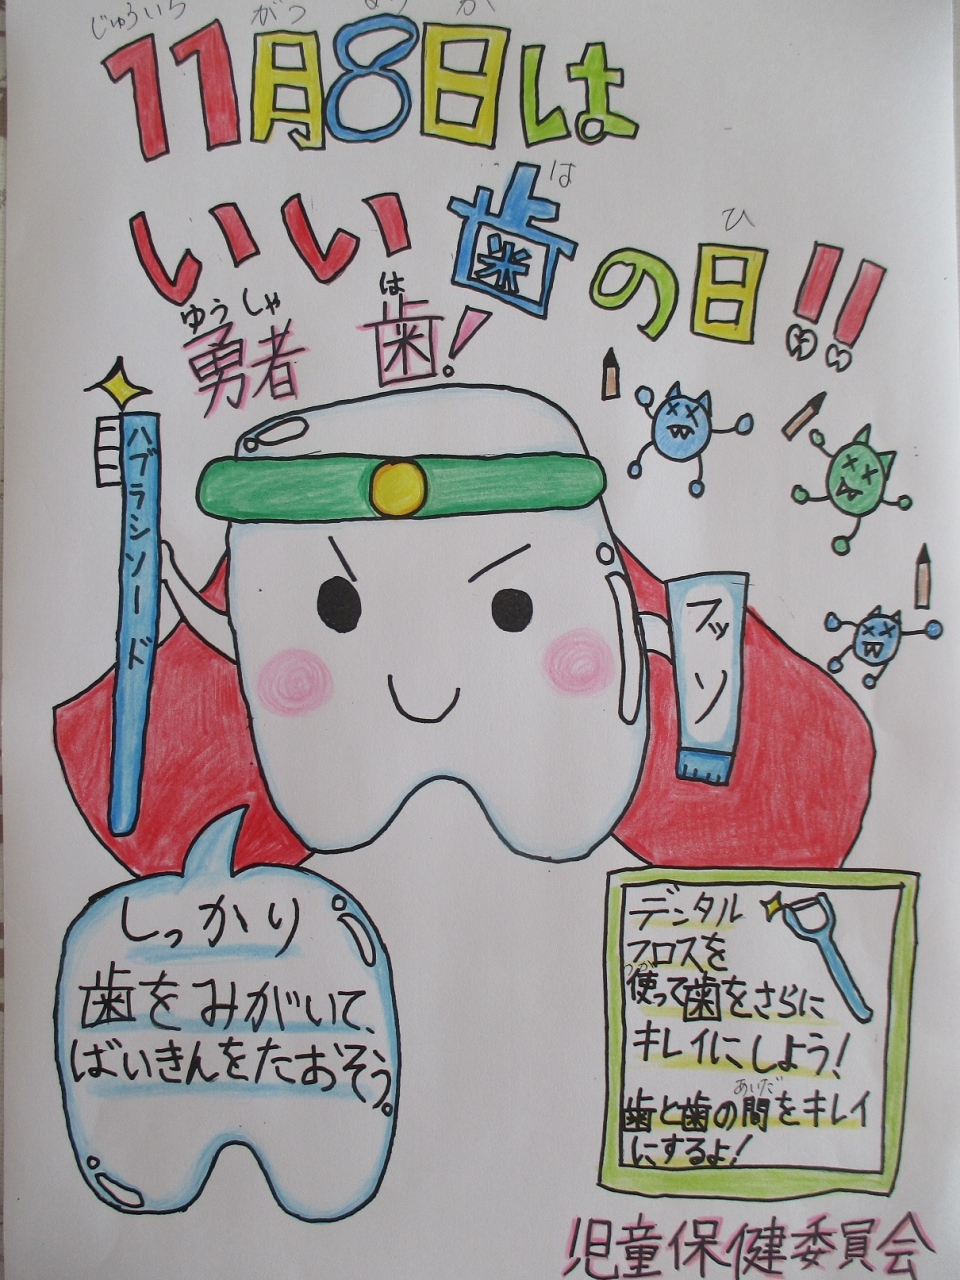 じゅういち がつ か
11月8日は
は ひ
いい歯の日!!
ゆうしゃ は
勇者 歯!
ハブラシソード
フッソ
しっかり
歯をみがいて、
ばいきんをたおそう。
デンタル
フロスを
つか
使って歯をさらに
キレイにしよう!
あいだ
歯と歯の間をキレイ
にするよ!
児童保健委員会